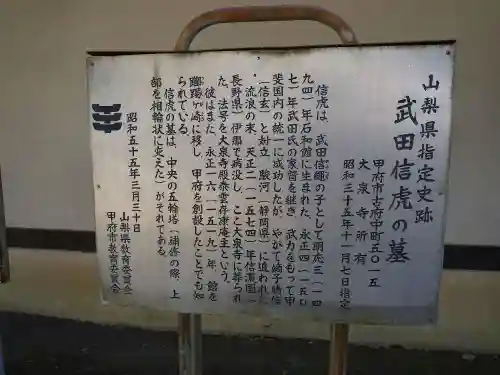 山梨県指定史跡
武田信虎の墓
甲府市古府中町五〇一五
大泉寺所有
昭和三十五年十一月七日指定
信虎は、武田信縄の子として明応三（一四
九四）年石和館に生まれた。永正四（一五〇
七）年武田氏の家督を継ぎ、武力をもって甲
斐国内の統一に成功したが、やがて嫡子晴信
（信玄）と対立、駿河（静岡県）に追われた。
流浪の末、天正二（一五七四）年信濃国（
長野県）伊那で病没し、ここ大泉寺に葬られ
た。法号を大泉寺殿泰雲存康庵主という。
彼はまた、永正十六（一五一九）年、館を
躑躅が崎に移し、甲府を創設したことでも知
られている。
信虎の墓は、中央の五輪塔（補修の際、上
部を相輪状に変えた）がそれである。
昭和五十五年三月三十日
山梨県教育委員会
甲府市教育委員会